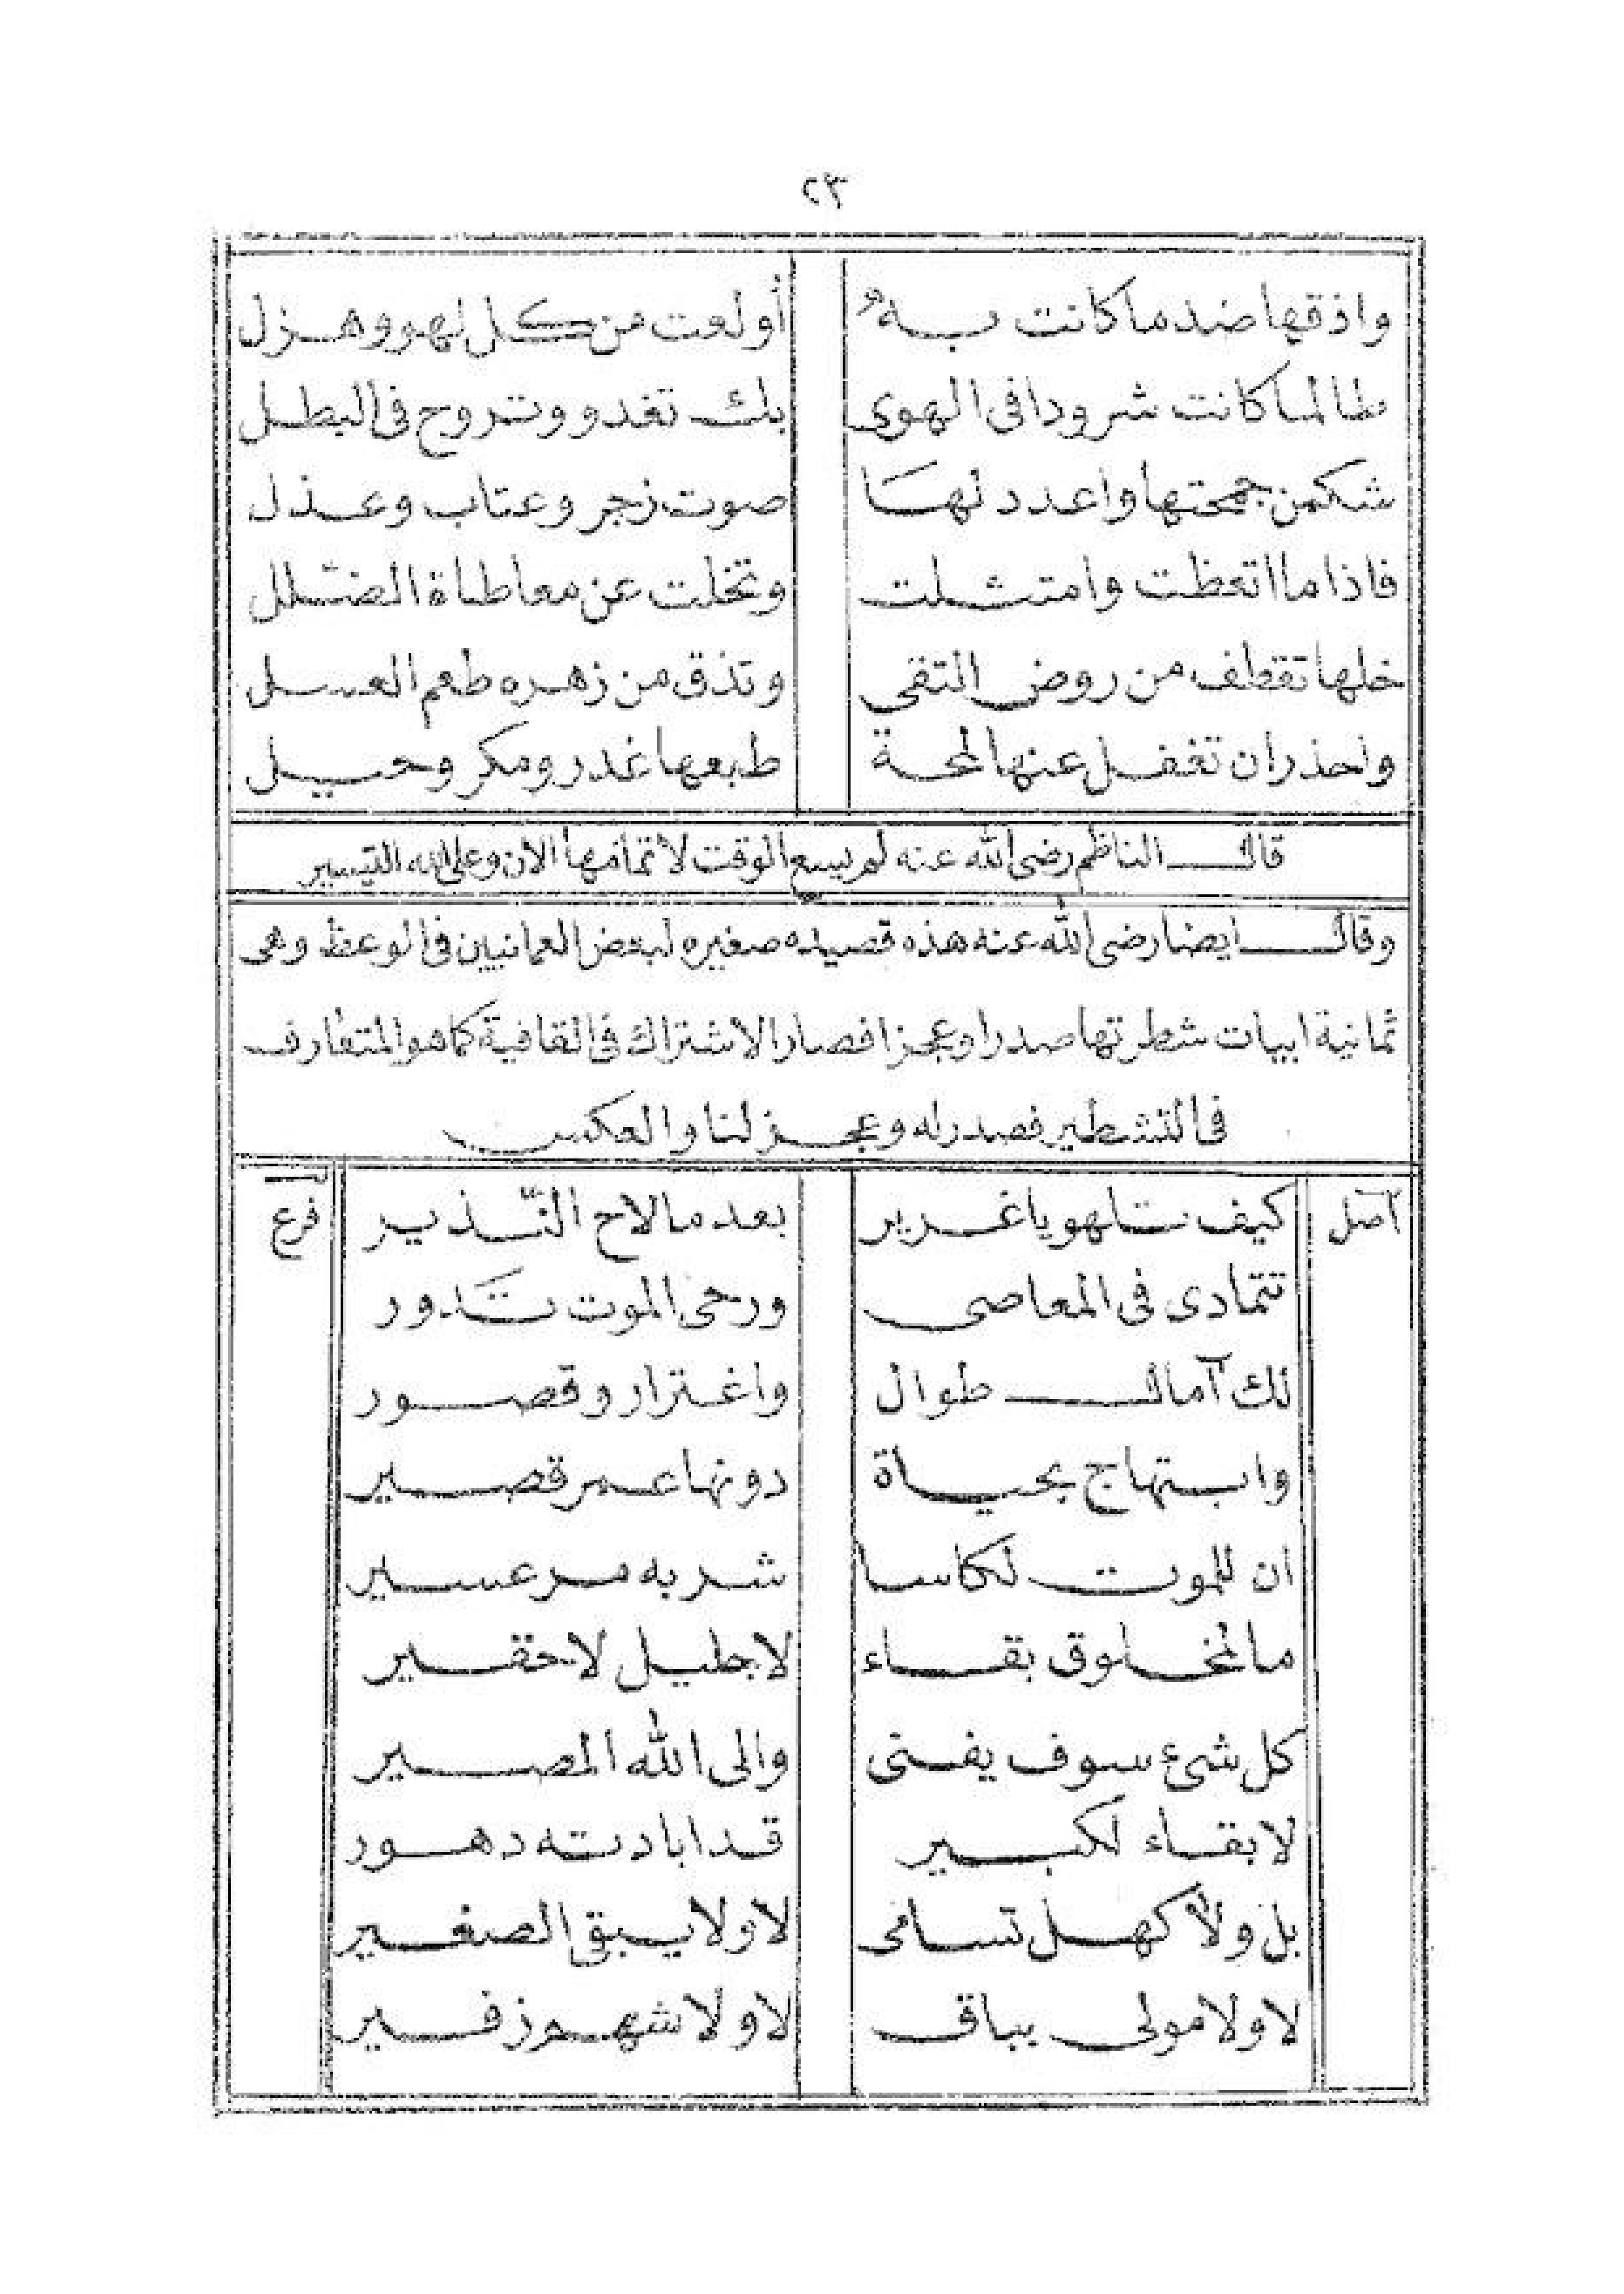 ٢٣
واذقها ضد ما كانت به أولعت من كل لهو وهزل
طالما كانت شرودا فى الهوى بك تغدو وتروح فى البطل
شكمن جمحتها واعدد لها صوت زجر وعتاب وعذل
فاذا ما اتعظت وامتثلت وتخلت عن معاطاة الضلل
خلها تقطف من روض التقى وتذق من زهره طعم العسل
واحذر ان تغفل عنها لمحة طبعها غدر ومكر وحيل
قال الناظم رضى الله عنه لم يسع الوقت لاتمامها الآن وعلى الله التيسير
وقال ايضا رضى الله عنه هذه قصيده صغيره لبعض العمانيين فى الوعظ وهى
ثمانية ابيات شطرتها صدرا وعجزا فصار الاشتراك فى القافية كما هو المتعارف
فى التشطير فصدر له وعجز لنا والعكس
أصل كيف تلهو يا غرير بعد ما لاح النّذير فرع
تتمادى فى المعاصى ورحى الموت تَدور
لك آمال طوال واغترار وقصور
وابتهاج بحياة دونها عمر قصير
ان للموت لكاسا شربه مر عسير
ما لمخلوق بقاء لا جليل لا حقير
كل شىء سوف يفنى والى الله المصير
لا بقاء لكبير قد ابادته دهور
بل ولا كهل تسامى لا ولا يبقى الصغير
لا ولا مولى بباق لا ولا شهم زفير